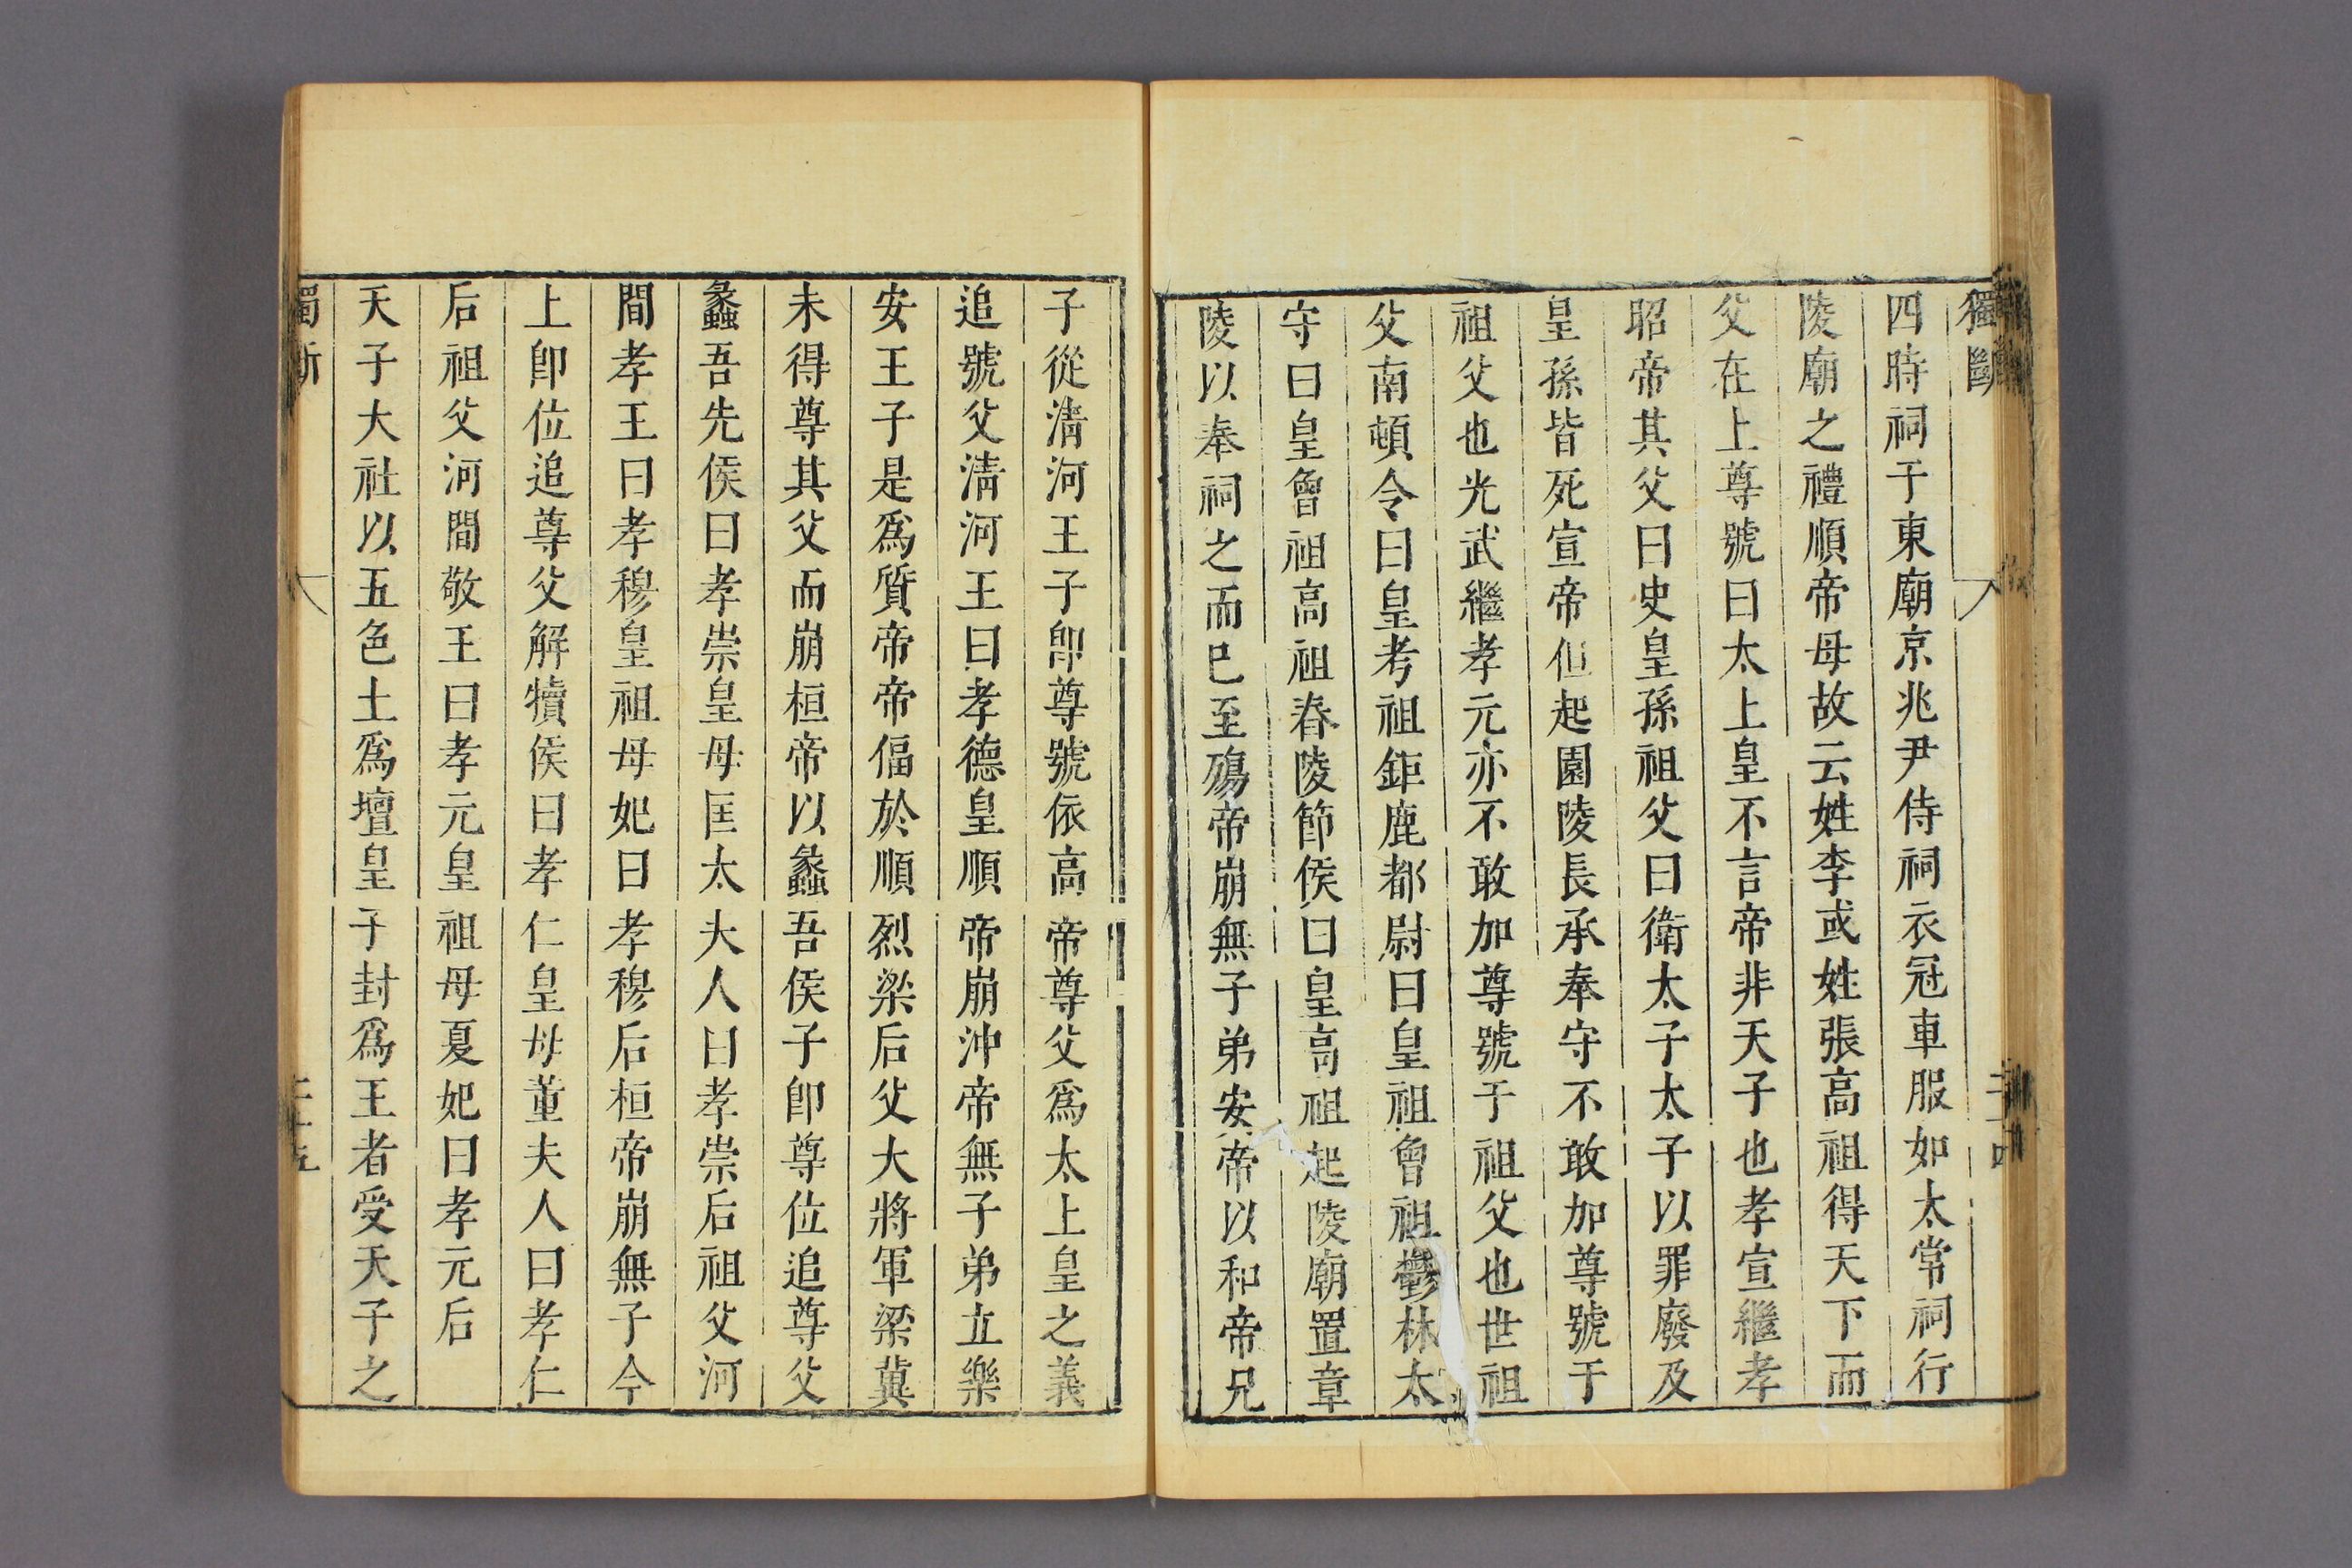 獨斷
二十四
四時祠于東廟京兆尹侍祠衣冠車服如太常祠行
陵廟之禮順帝母故云姓李或姓張高祖得天下而
父在上尊號曰太上皇不言帝非天子也孝宣繼孝
昭帝其父曰史皇孫祖父曰衛太子太子以罪廢及
皇孫皆死宣帝但起園陵長承奉守不敢加尊號于
祖父也光武繼孝元亦不敢加尊號于祖父也世祖
父南頓令曰皇考祖鉅鹿都尉曰皇祖曾祖鬱林太
守曰皇曾祖高祖舂陵節侯曰皇高祖起陵廟置章
陵以奉祠之而已至殤帝崩無子弟安帝以和帝兄
子從清河王子卽尊號依高帝尊父爲太上皇之義
追號父清河王曰孝德皇順帝崩沖帝無子弟立樂
安王子是爲質帝帝偪於順烈梁后父大將軍梁冀
未得尊其父而崩桓帝以蠡吾侯子卽尊位追尊父
蠡吾先侯曰孝崇皇母匡太夫人曰孝崇后祖父河
間孝王曰孝穆皇祖母妃曰孝穆后桓帝崩無子今
上卽位追尊父解犢侯曰孝仁皇母董夫人曰孝仁
后祖父河間敬王曰孝元皇祖母夏妃曰孝元后
天子大社以五色土爲壇皇子封爲王者受天子之
獨斷
二十五